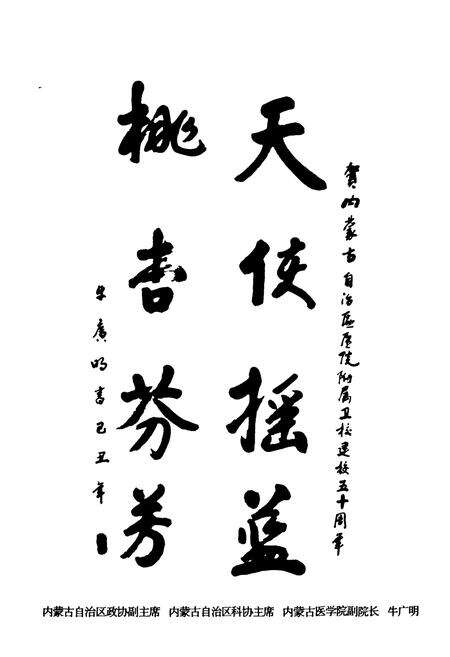 贺内蒙古自治区医院附属卫校建校五十周年
天使摇蓝
桃杏芬芳
牛廣明書己丑年
内蒙古自治区政协副主席 内蒙古自治区科协主席 内蒙古医学院副院长 牛广明